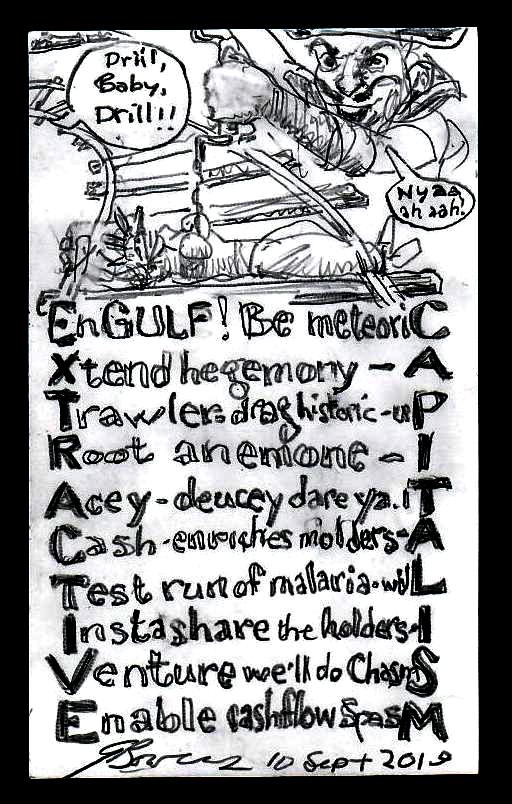 Drill,
Baby,
Drill!!
Nyaa
ah aah!
EnGULF! Be meteoriC
Xtend hegemony - A
Trawlers drag historic-uP
Root anemone - I
Acey-deucey dare ya. iT
Cash-enriches molders-A
Test run of malaria-wilL
Instashare the holders-I
Venture we'll do ChasmS
Enable cashflow SpasM
10 Sept 2019